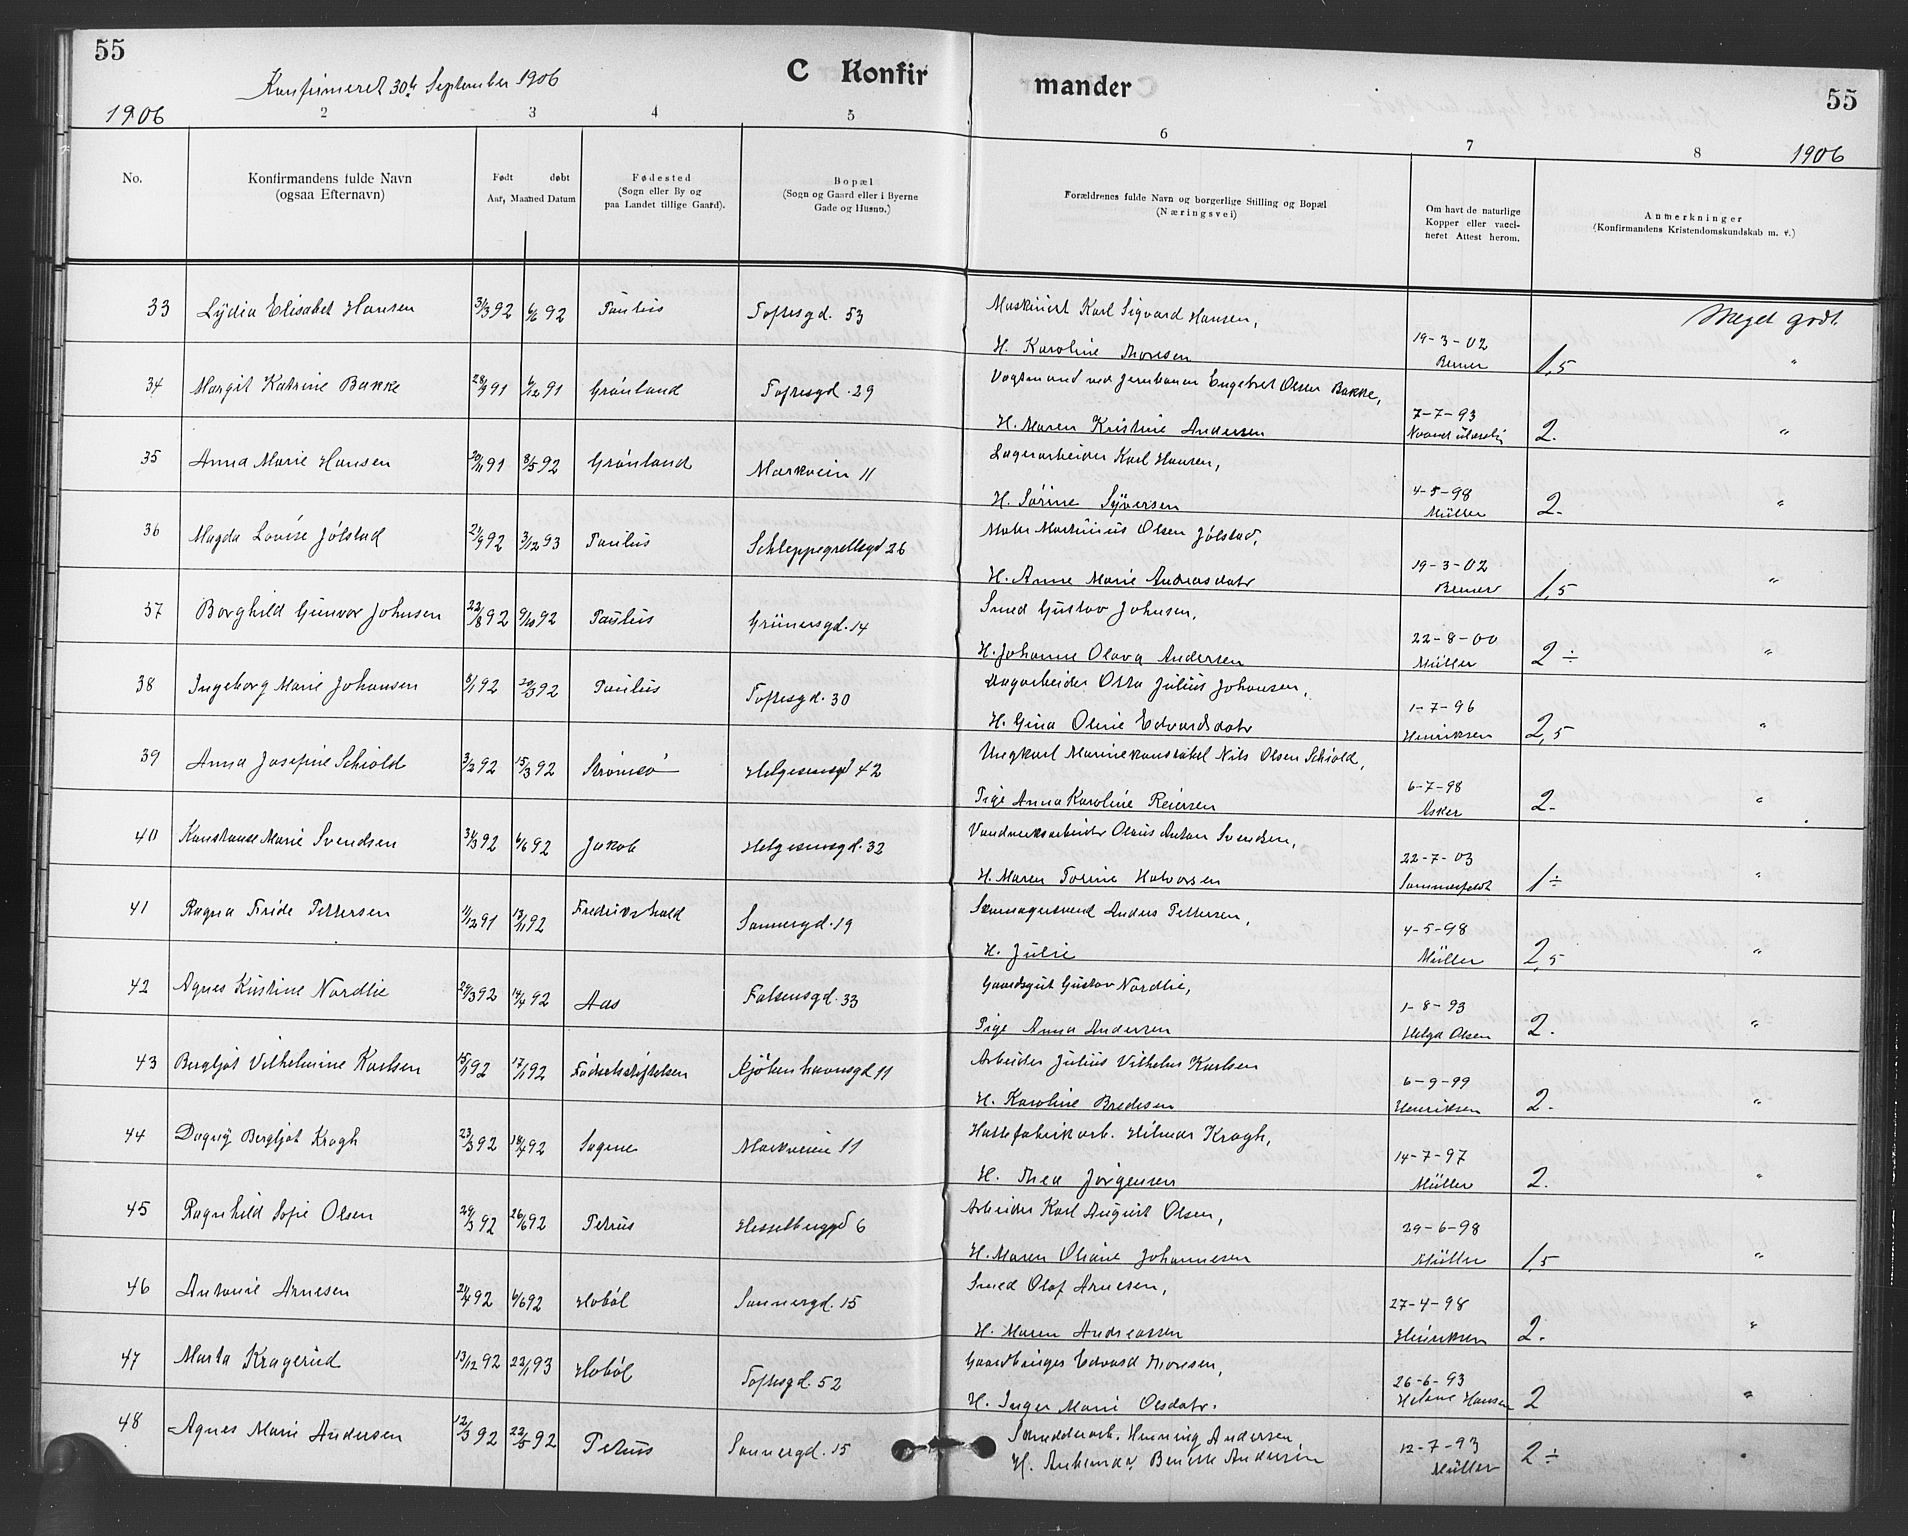 55
Konfirmeret 30te September 1906
C Konfir
mander
55
1906
2
3
4
5
6
7
8
1906
No.
Konfirmandens fulde Navn
(ogsaa Efternavn)
Født døbt
Aar, Maaned Datum
Fødested
(Sogn eller By og
paa Landet tillige Gaard).
Bopæl
(Sogn og Gaard eller i Byerne
Gade og Husno.)
Forældrenes fulde Navn og borgerlige Stilling og Bopæl
(Næringsvei)
Om havt de naturlige
Kopper eller vacci-
neret Attest herom.
Anmerkninger
(Konfirmandens Kristendomskundskab m. v.)
33 Lydia Elisabet Hansen 31/3 92 6/6 92 Paulus Toftesgd. 53 Maskinist Karl Sigvard Hansen, Meget godt.
H. Karoline Thoresen 19-3-02 Berner 1,5 "
34 Margit Katrine Bakke 28/9 91 6/12 91 Grønland Toftesgd. 29 Vogtmand ved Jernbanen Engebret Olsen Bakke,
H. Maren Kristine Andersen 7-7-93 2. "
35 Anna Marie Hansen 20/11 91 8/5 92 Grønland Markvein 11 Lagerarbeider Karl Hansen,
H. Sørine Syversen 4-5-98 Müller 2. "
36 Magda Lovise Jølstad 21/9 92 3/12 93 Paulus Schleppegrellsgd 26 Maler Martinius Olsen Jølstad,
H. Anne Marie Andreasdatr 19-3-02 Berner 1,5 "
37 Borghild Gunvor Johnsen 22/8 92 9/10 92 Paulus Grünersgd. 14 Smed Gustav Johnsen,
H. Johanne Olava Andersen 22-8-00 Müller 2 ÷ "
38 Ingeborg Marie Johansen 8/1 92 20/3 92 Paulus Toftesgd. 30 Dagarbeider Otto Julius Johansen,
H. Gina Oline Edvardsdatr 1-7-96 Henriksen 2,5 "
39 Anna Josefine Schiold 3/2 92 15/3 92 Strømsø Helgesensgd 42 Ungkarl Marinekonstabel Nils Olsen Schiold,
Pige Anna Karoline Reiersen 6-7-98 Asker 2. "
40 Konstanse Marie Svendsen 31/3 92 6/6 92 Jakob Helgesensgd. 32 Vandverksarbeider Olaus Anton Svendsen,
H. Maren Torine Halvorsen 22-7-03 Sommerfeldt 1 ÷ "
41 Ragna Fride Pettersen 11/12 91 13/1 92 Fredrikshald Sannergd. 19 Skomagersvend Anders Pettersen,
H. Julie 4-5-98 Müller 2,5 "
42 Agnes Kristine Nordlie 29/3 92 14/4 92 Aas Falsensgd. 33 Gaardsgut Gustav Nordlie,
Pige Anna Andersen 1-8-93 Helga Olsen 2. "
43 Bergljot Vilhelmine Karlsen 15/1 92 17/1 92 Fødselsstiftelsen Kjøbenhavnsgd 11 Arbeider Julius Vilhelm Karlsen
H. Karoline Bredesen 6-9-99 Henriksen 2. "
44 Dagny Bergljot Kragh 23/3 92 18/4 92 Sagene Markveien 11 Hattefabrikarb. Hilmar Kragh,
H. Thea Jørgensen 14-7-97 Müller 2. "
45 Ragnhild Sofie Olsen 29/3 92 26/6 92 Petrus Hesselberggd 6 Arbeider Karl August Olsen,
H. Maren Oliane Johannesen 29-6-98 Müller 1,5 "
46 Antonie Arnesen 21/4 92 6/6 92 Hobøl Sannergd. 15 Smed Olaf Arnesen,
H. Maren Andreassen 27-4-98 Henriksen 2. "
47 Marta Kragerud 13/12 92 22/1 93 Hobøl Toftesgd. 52 Gaardbruger Edvard Thoresen,
H. Inger Marie Olsdatr. 26-6-93 Helene Hansen 2 "
48 Agnes Marie Andersen 12/3 92 22/5 92 Petrus Sannergd. 15 Smedderarb. Henning Andersen
H. Benette Andersen 12-7-93 Müller 2 ÷ "